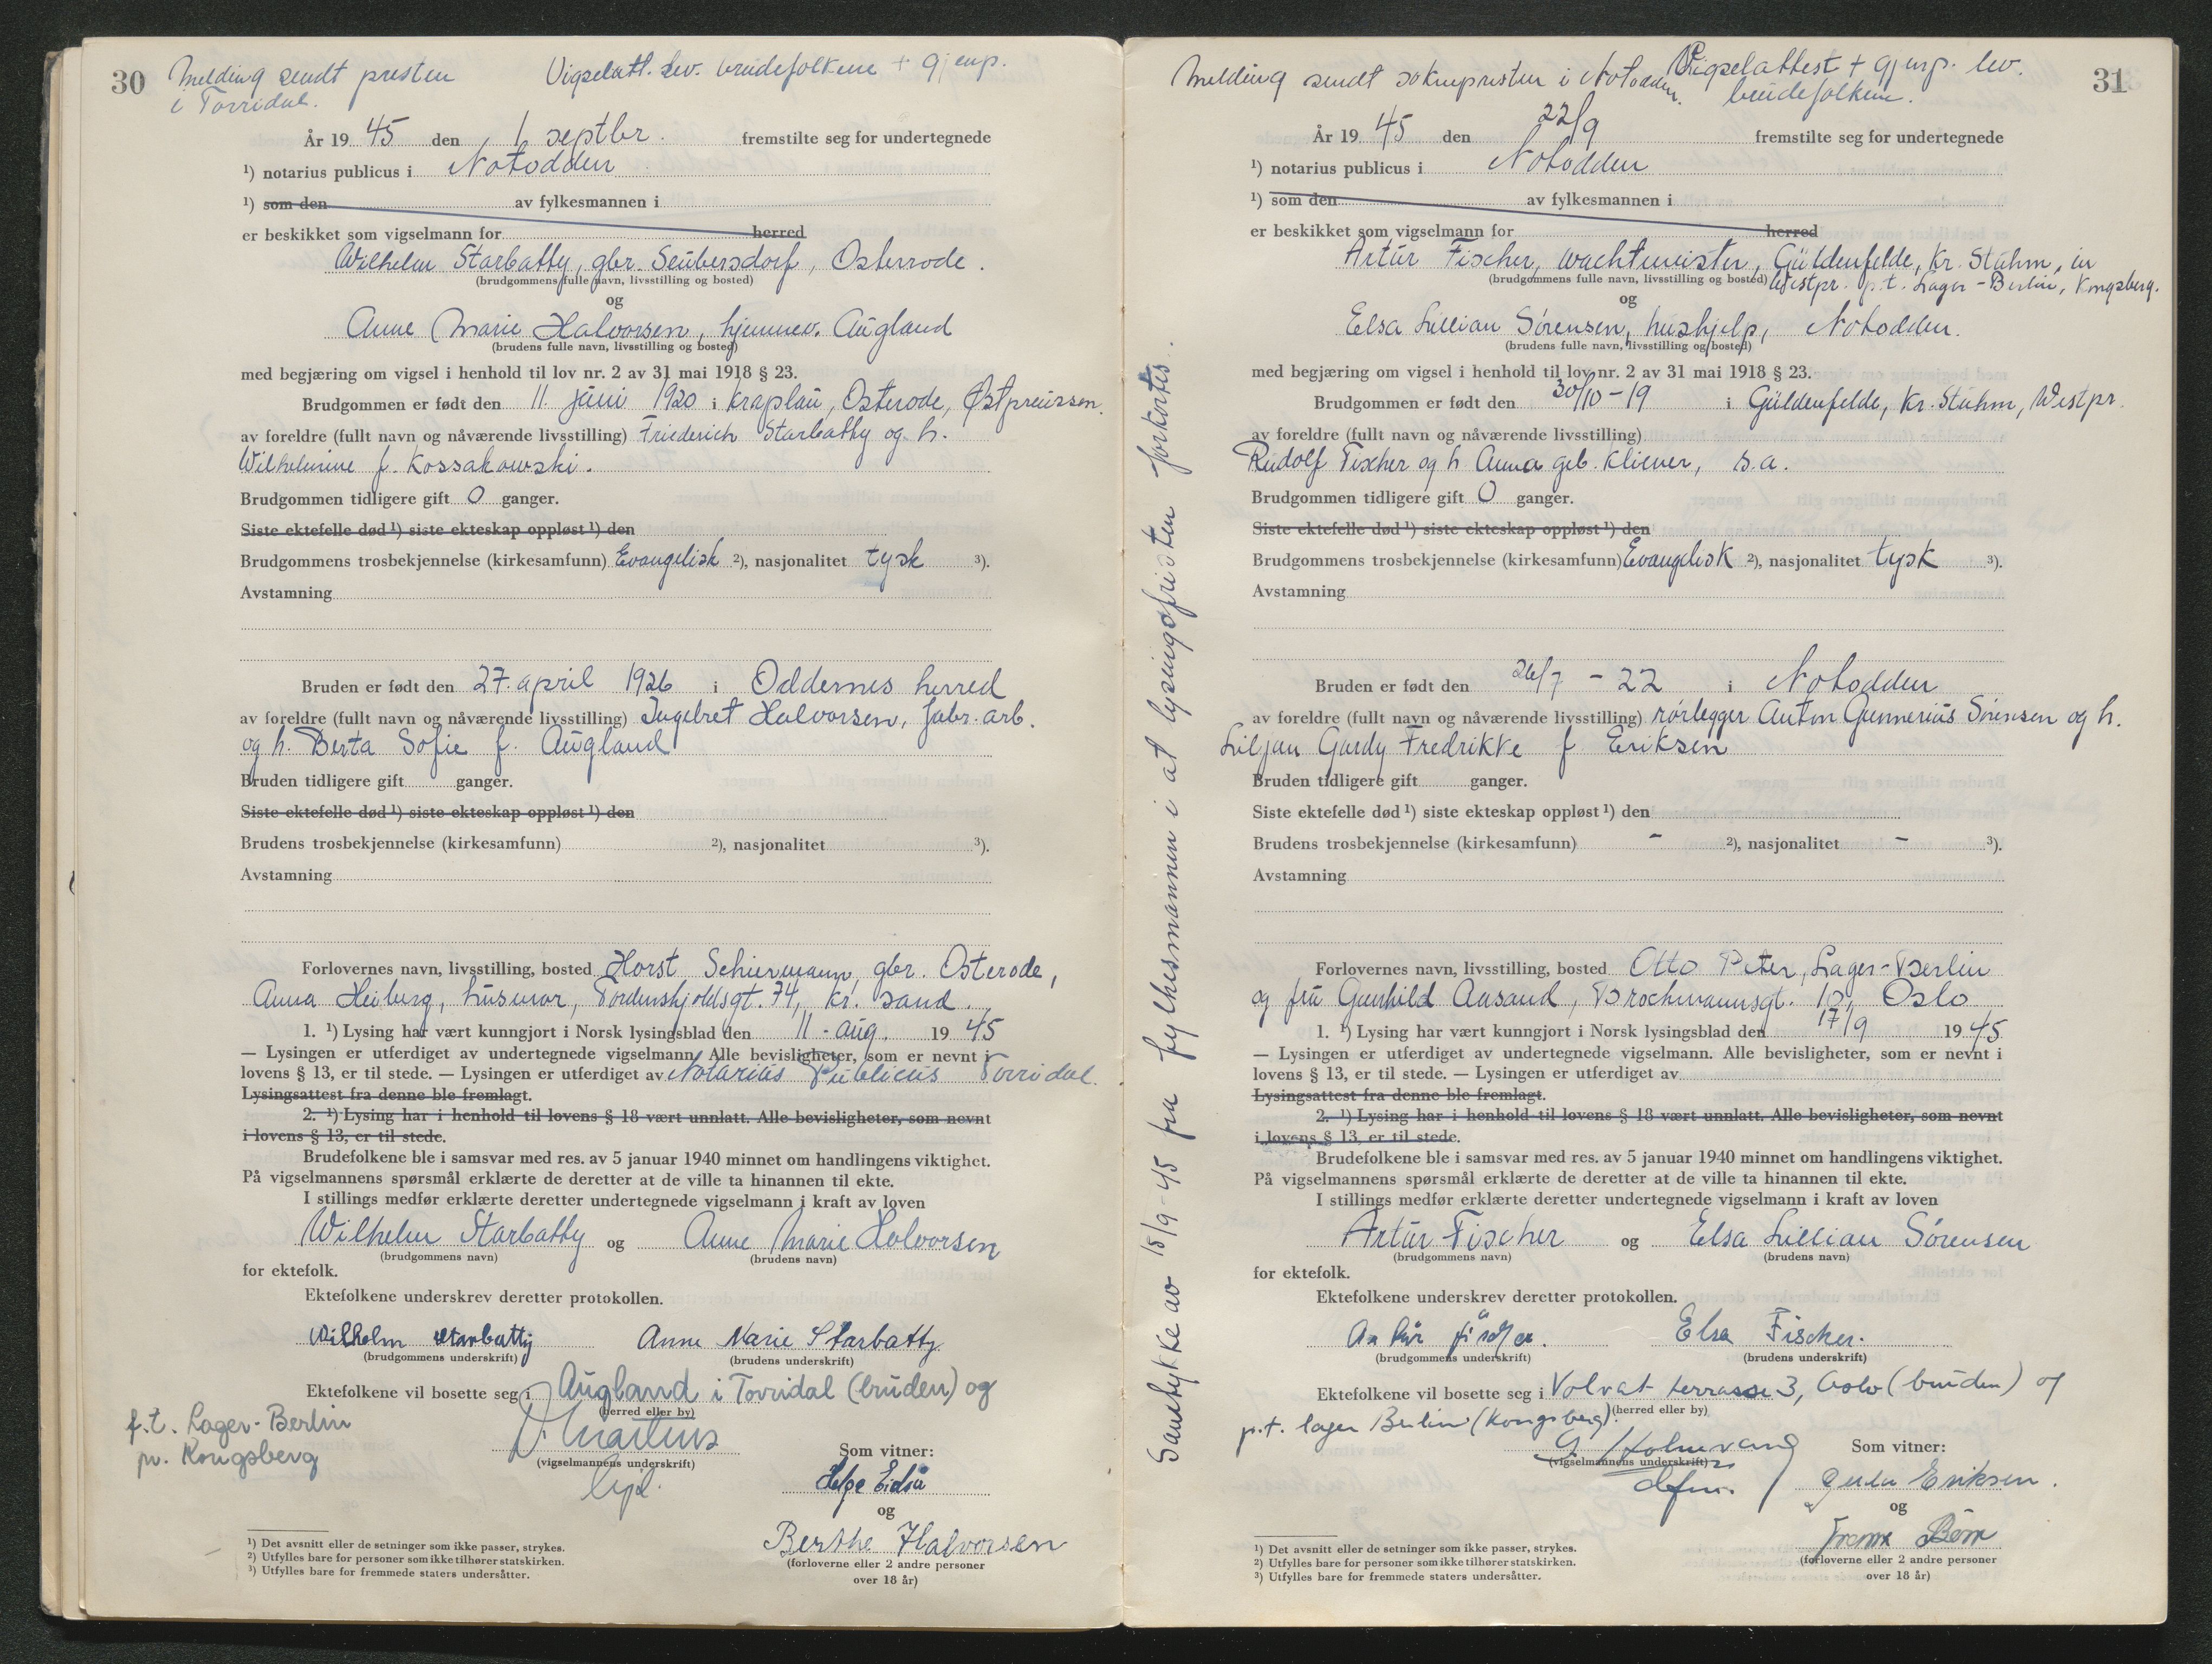 30
Melding sendt presten
i Torridal.
Vigselatt. lev. brudefolkene + gjenp.
År 19 45 den 1 septbr. fremstilte seg for undertegnede
¹) notarius publicus i Notodden
¹) som den av fylkesmannen i
er beskikket som vigselmann for herred
Wilhelm Starbatty, gbr. Seubersdorf, Osterrode.
(brudgommens fulle navn, livsstilling og bosted)
og
Anne Marie Halvorsen, hjemmev. Augland
(brudens fulle navn, livsstilling og bosted)
med begjæring om vigsel i henhold til lov nr. 2 av 31 mai 1918 § 23.
Brudgommen er født den 11. juni 1920 i Kraplau, Osterode, Østpreussen.
av foreldre (fullt navn og nåværende livsstilling) Friederich Starbatty og h.
Wilhelmine f. Kossakowski.
Brudgommen tidligere gift 0 ganger.
Siste ektefelle død ¹) siste ekteskap oppløst ¹) den
Brudgommens trosbekjennelse (kirkesamfunn) Evangelisk ²), nasjonalitet tysk ³).
Avstamning
Bruden er født den 27. april 1926 i Oddernes herred
av foreldre (fullt navn og nåværende livsstilling) Ingebret Halvorsen, fabr. arb.
og h. Berta Sofie f. Augland
Bruden tidligere gift ganger.
Siste ektefelle død ¹) siste ekteskap oppløst ¹) den
Brudens trosbekjennelse (kirkesamfunn) ²), nasjonalitet ³).
Avstamning
Forlovernes navn, livsstilling, bosted Horst Schiermann, gbr. Osterode,
Anna Heiberg, husmor, Tordenskjoldsgt. 74, Kr. sand.
1. ¹) Lysing har vært kunngjort i Norsk lysingsblad den 11. aug. 19 45
— Lysingen er utferdiget av undertegnede vigselmann. Alle bevisligheter, som er nevnt i
lovens § 13, er til stede. — Lysingen er utferdiget av Notarius Publicus Torridal.
Lysingsattest fra denne ble fremlagt.
2. ¹) Lysing har i henhold til lovens § 18 vært unnlatt. Alle bevisligheter, som nevnt
i lovens § 13, er til stede.
Brudefolkene ble i samsvar med res. av 5 januar 1940 minnet om handlingens viktighet.
På vigselmannens spørsmål erklærte de deretter at de ville ta hinannen til ekte.
I stillings medfør erklærte deretter undertegnede vigselmann i kraft av loven
Wilhelm Starbatty og Anne Marie Halvorsen
(brudgommens navn) (brudens navn)
for ektefolk.
Ektefolkene underskrev deretter protokollen.
Wilhelm Starbatty Anne Marie Starbatty
(brudgommens underskrift) (brudens underskrift)
Ektefolkene vil bosette seg i Augland i Torridal (bruden) og
(herred eller by)
f.t. Lager-Berlin
pr. Kongsberg
(vigselmannens underskrift)
Som vitner:
Helge Eidså
og
Berthe Halvorsen
(forloverne eller 2 andre personer
over 18 år)
¹) Det avsnitt eller de setninger som ikke passer, strykes.
²) Utfylles bare for personer som ikke tilhører statskirken.
³) Utfylles bare for fremmede staters undersåtter.
31
Melding sendt sokneprestem i Notodden.
Vigselattest + gjenp. lev.
brudefolkene.
År 19 45 den 22/9 fremstilte seg for undertegnede
¹) notarius publicus i Notodden
¹) som den av fylkesmannen i
er beskikket som vigselmann for herred
Artur Fischer, wachtmeister, Güldenfelde, Kr. Stuhm, in
(brudgommens fulle navn, livsstilling og bosted) Westpr. p.t. Lager-Berlin, Kongsberg.
og
Elsa Lillian Sørensen, hushjelp, Notodden.
(brudens fulle navn, livsstilling og bosted)
med begjæring om vigsel i henhold til lov nr. 2 av 31 mai 1918 § 23.
Brudgommen er født den 30/10-19 i Güldenfelde, Kr. Stuhm, Westpr.
av foreldre (fullt navn og nåværende livsstilling)
Rudolf Fischer og h. Anna geb. Kliewer, s.a.
Brudgommen tidligere gift 0 ganger.
Siste ektefelle død ¹) siste ekteskap oppløst ¹) den
Brudgommens trosbekjennelse (kirkesamfunn) Evangelisk ²), nasjonalitet tysk ³).
Avstamning
Bruden er født den 26/7 - 22 i Notodden
av foreldre (fullt navn og nåværende livsstilling) rørlegger Anton Gunnerius Sørensen og h.
Liljan Gardy Fredrikke f Eriksen
Bruden tidligere gift ganger.
Siste ektefelle død ¹) siste ekteskap oppløst ¹) den
Brudens trosbekjennelse (kirkesamfunn) - ²), nasjonalitet - ³).
Avstamning
Forlovernes navn, livsstilling, bosted Otto Peter, Lager-Berlin
og fru Gunhild Aasand, Brochmannsgt. 10, Oslo
1. ¹) Lysing har vært kunngjort i Norsk lysingsblad den 17/9 19 45
— Lysingen er utferdiget av undertegnede vigselmann. Alle bevisligheter, som er nevnt i
lovens § 13, er til stede. — Lysingen er utferdiget av
Lysingsattest fra denne ble fremlagt.
2. ¹) Lysing har i henhold til lovens § 18 vært unnlatt. Alle bevisligheter, som nevnt
i lovens § 13, er til stede.
Brudefolkene ble i samsvar med res. av 5 januar 1940 minnet om handlingens viktighet.
På vigselmannens spørsmål erklærte de deretter at de ville ta hinannen til ekte.
I stillings medfør erklærte deretter undertegnede vigselmann i kraft av loven
Artur Fischer og Elsa Lillian Sørensen
(brudgommens navn) (brudens navn)
for ektefolk.
Ektefolkene underskrev deretter protokollen.
Artur Fischer. Elsa Fischer.
(brudgommens underskrift) (brudens underskrift)
Ektefolkene vil bosette seg i Volvat terrasse 3, Oslo (bruden) og
p.t. lager Berlin (Kongsberg). (herred eller by)
G. Holmvang
(vigselmannens underskrift)
Som vitner:
Gerda Eriksen.
og
(forloverne eller 2 andre personer
over 18 år)
¹) Det avsnitt eller de setninger som ikke passer, strykes.
²) Utfylles bare for personer som ikke tilhører statskirken.
³) Utfylles bare for fremmede staters undersåtter.
Samtykke av 18/9-45 fra fylkesmannen i at lysingsfristen forkortes.